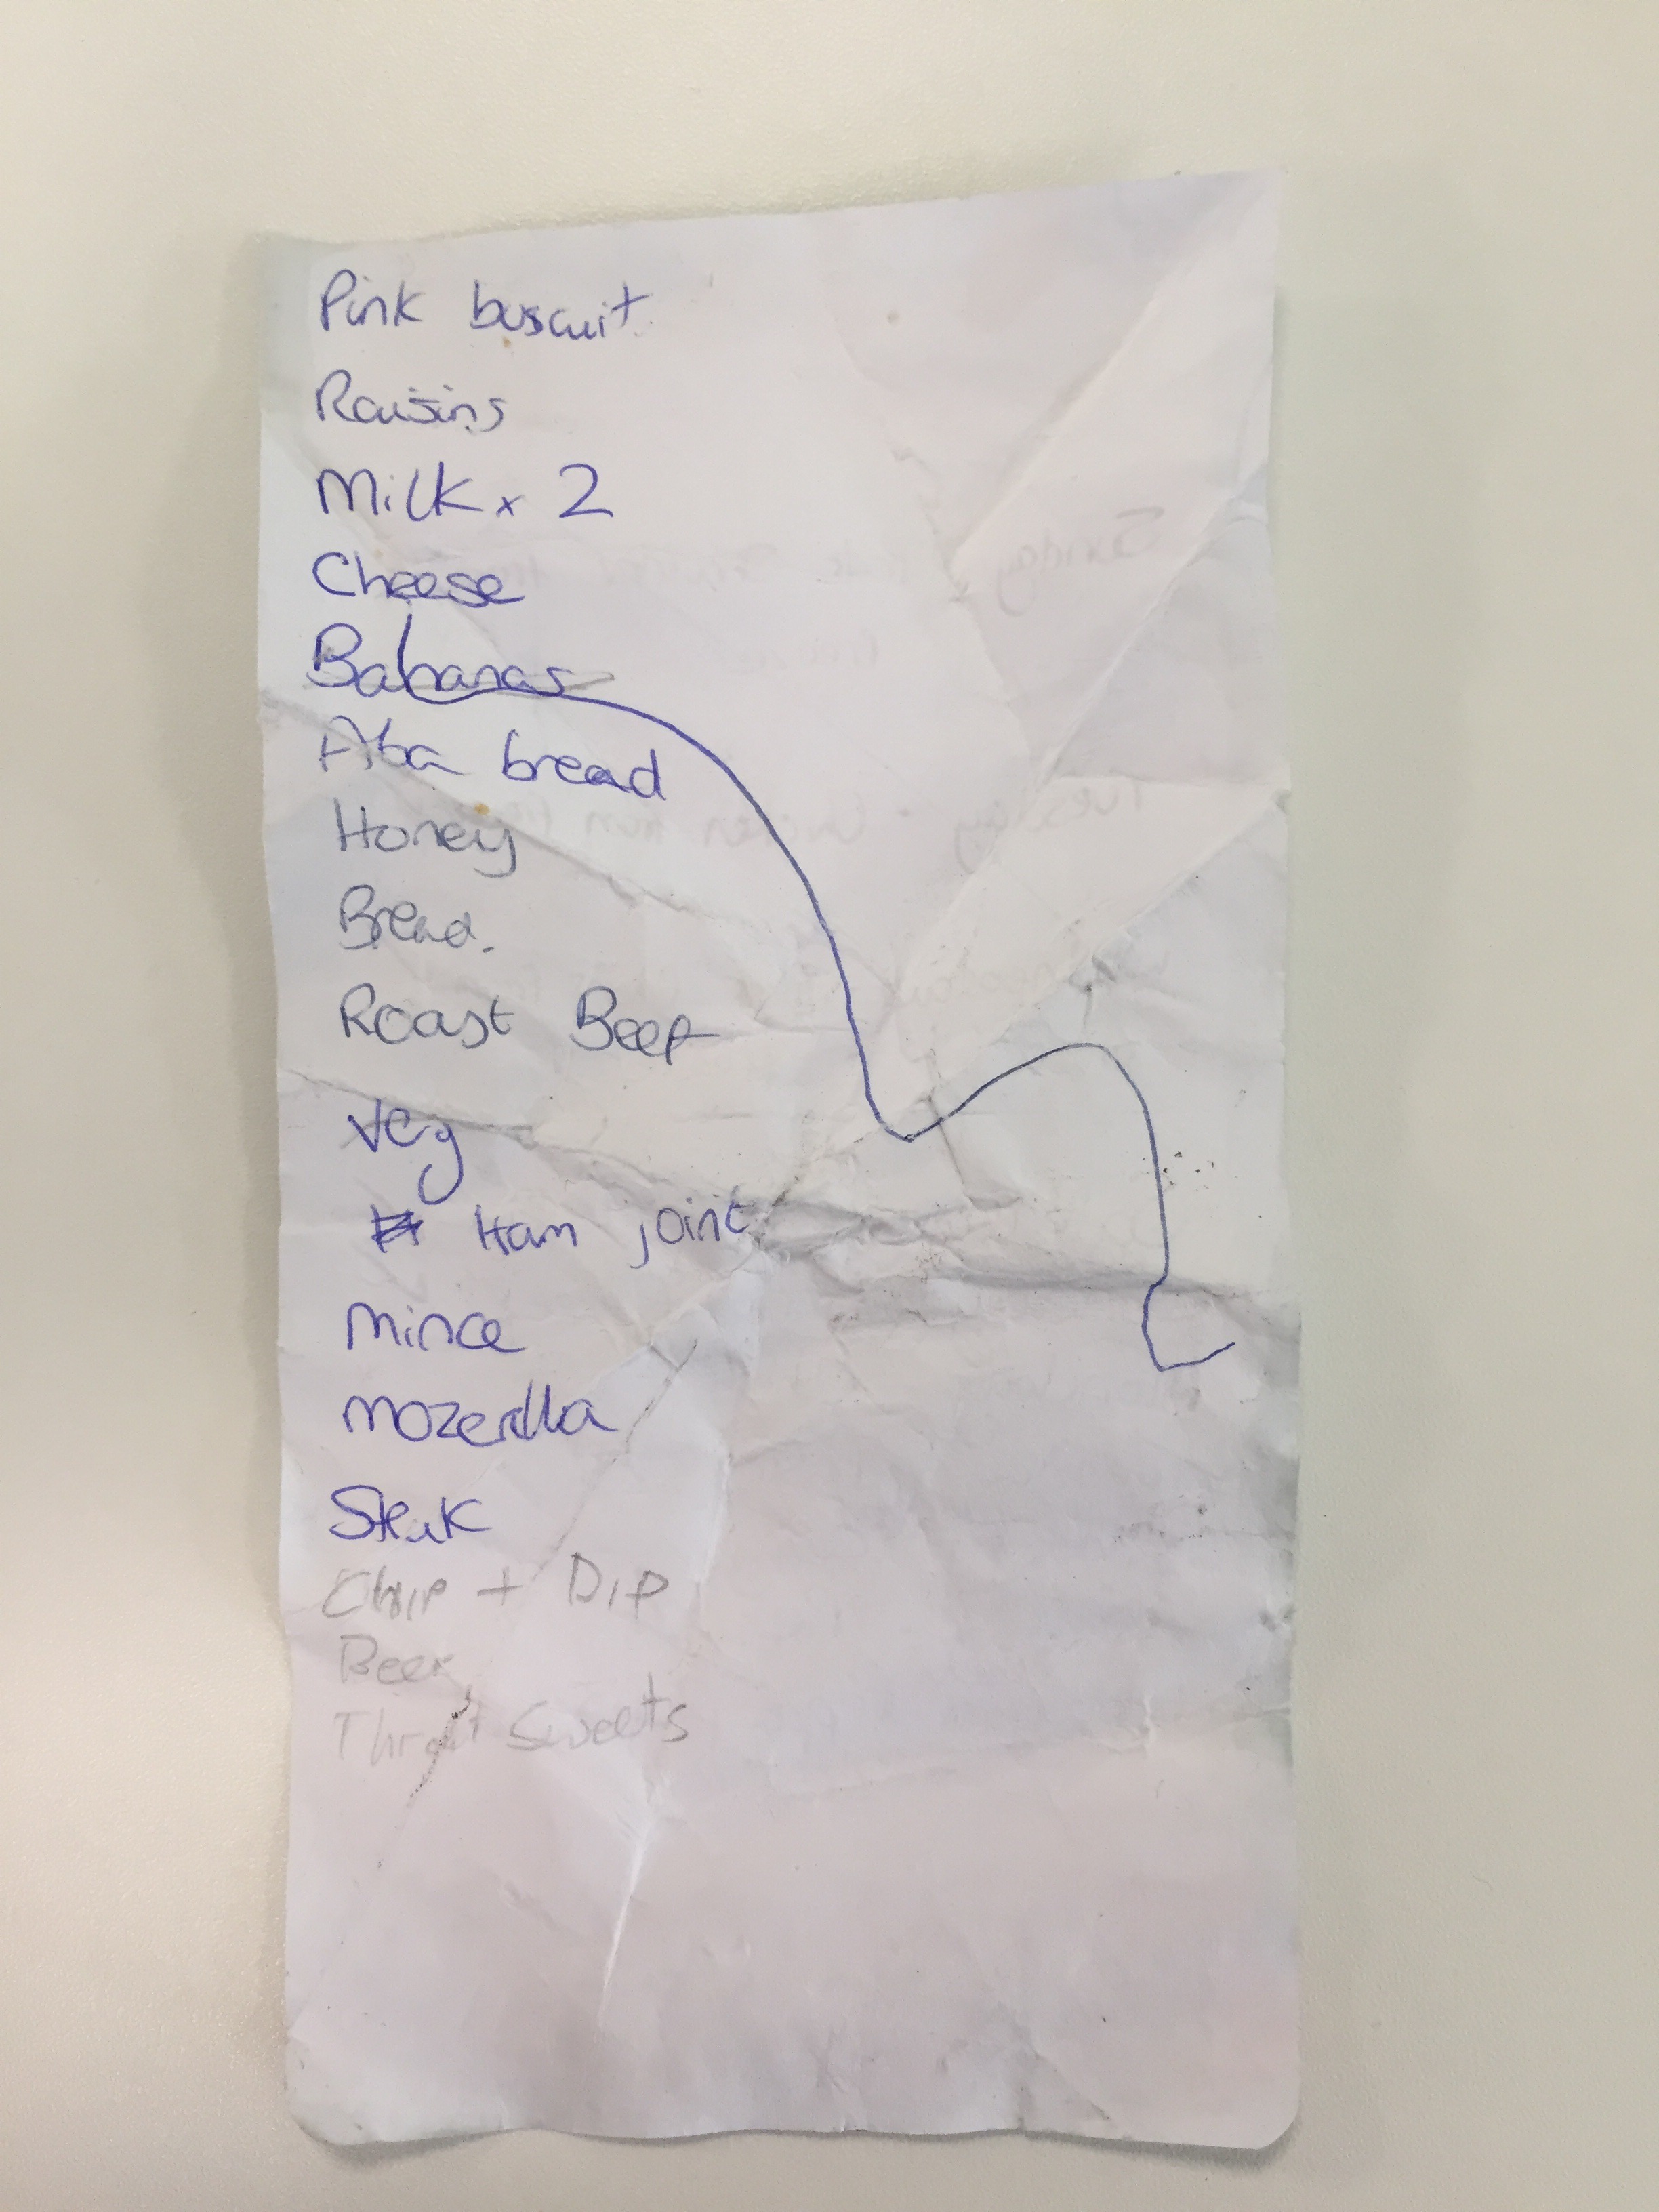 Pink buscuit
Raisins
Milk x 2
Cheese
Bananas
bread
Honey
Bread.
Roast Beef
Veg
Ham joint
Mince
Mozerella
Steak
Chip + Dip
Beer
Throat Sweets